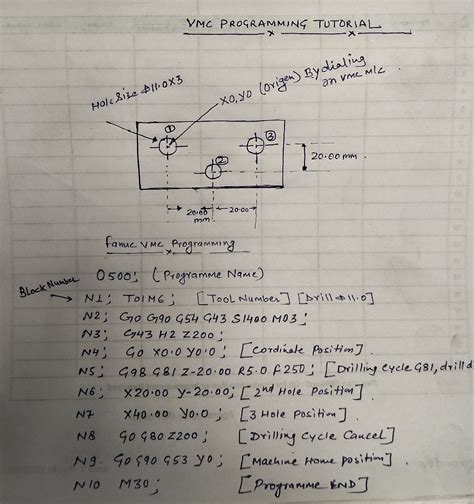 VMC PROGRAMMING TUTORIAL
Hole Size ϕ11.0X3
X0,Y0 (Origen) By dialing
on VMC M/C
①
②
③
20.00 mm
20.00
mm
20.00
fanuc VMC Programming
Block Number
O500; (Programme Name)
N1; T01M6; [Tool Number] [Drill ϕ11.0]
N2; G0 G90 G54 G43 S1400 M03;
N3; G43 H2 Z200;
N4; G0 X0.0 Y0.0; [Cordinate Position].
N5; G98 G81 Z-20.00 R5.0 F250; [Drilling Cycle G81, drill d
N6; X20.00 Y-20.00; [2nd Hole Position]
N7 X40.00 Y0.0; [3 Hole Position]
N8 G0 G80 Z200; [Drilling Cycle Cancel]
N9. G0 G90 G53 Y0; [Machine Home position]
N10 M30; [Programme END]